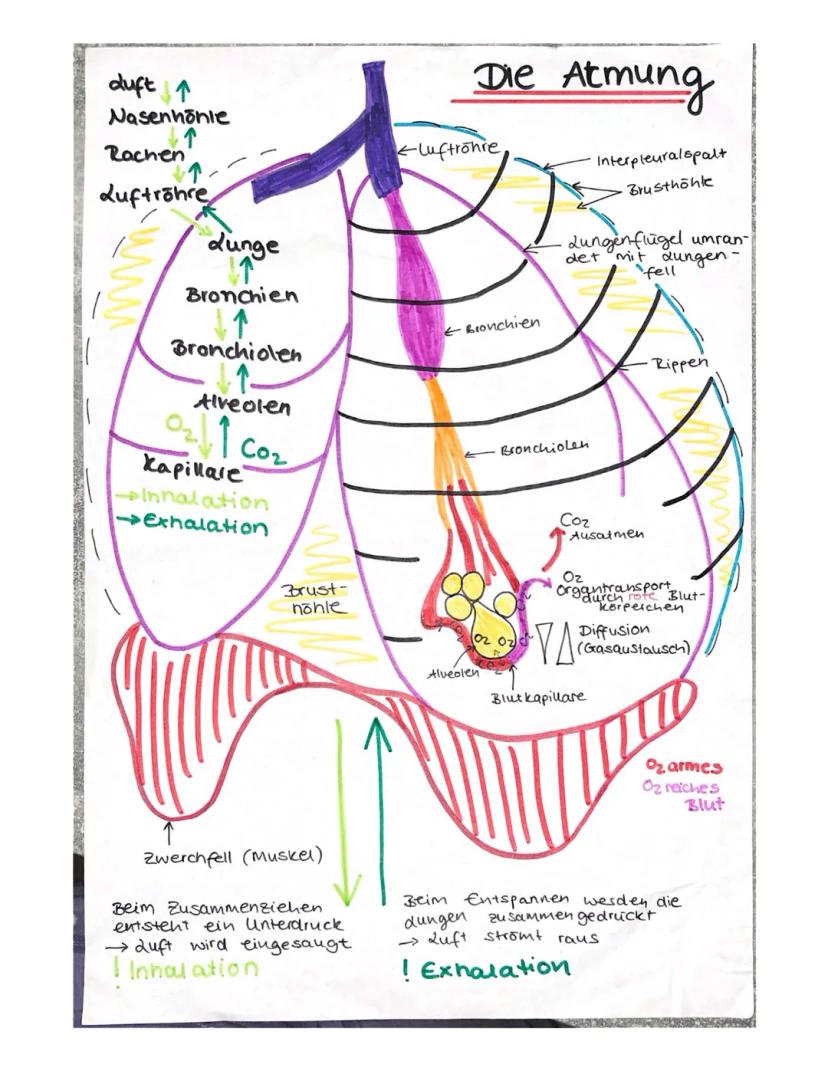 Die Atmung
Luft
Nasenhöhle
Rachen
Luftröhre
Lunge
Bronchien
Bronchiolen
Alveolen
O2
CO2
Kapillare
→ Inhalation
→ Exhalation
Luftröhre
Interpleuralspalt
Brusthöhle
Lungenflügel umran-
det mit Lungen-
fell
Bronchien
Rippen
Bronchiolen
CO2
Ausatmen
O2
Organtransport
durch rote Blut-
körperchen
Diffusion
(Gasaustausch)
Brust-
höhle
O2 O2
CO2
CO2
Alveolen
Blutkapillare
O2 armes
O2 reiches
Blut
Zwerchfell (Muskel)
Beim Zusammenziehen
entsteht ein Unterdruck
→ Luft wird eingesaugt
! Inhalation
Beim Entspannen werden die
Lungen zusammengedrückt
→ Luft strömt raus
! Exhalation